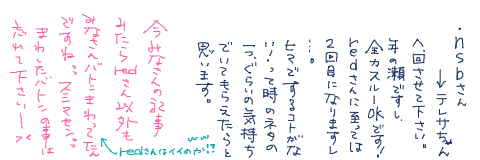 ・nsbさん
→テレサちゃん
へ回させて下さい。
年の瀬ですし、
全力スルーOKです!
redさんに至っては
2回目になりますし
…。
ヒマですることがな
い!って時のネタの
一つぐらいの気持ち
でいてもらえたらと
思います。
今みなさんの記事
みたらredさん以外も
みなさんバトンまわってたん
ですね。スミマセンっ
まわしたバトンの事は
忘れて下さいー><
redさんはイイのか!?
ww